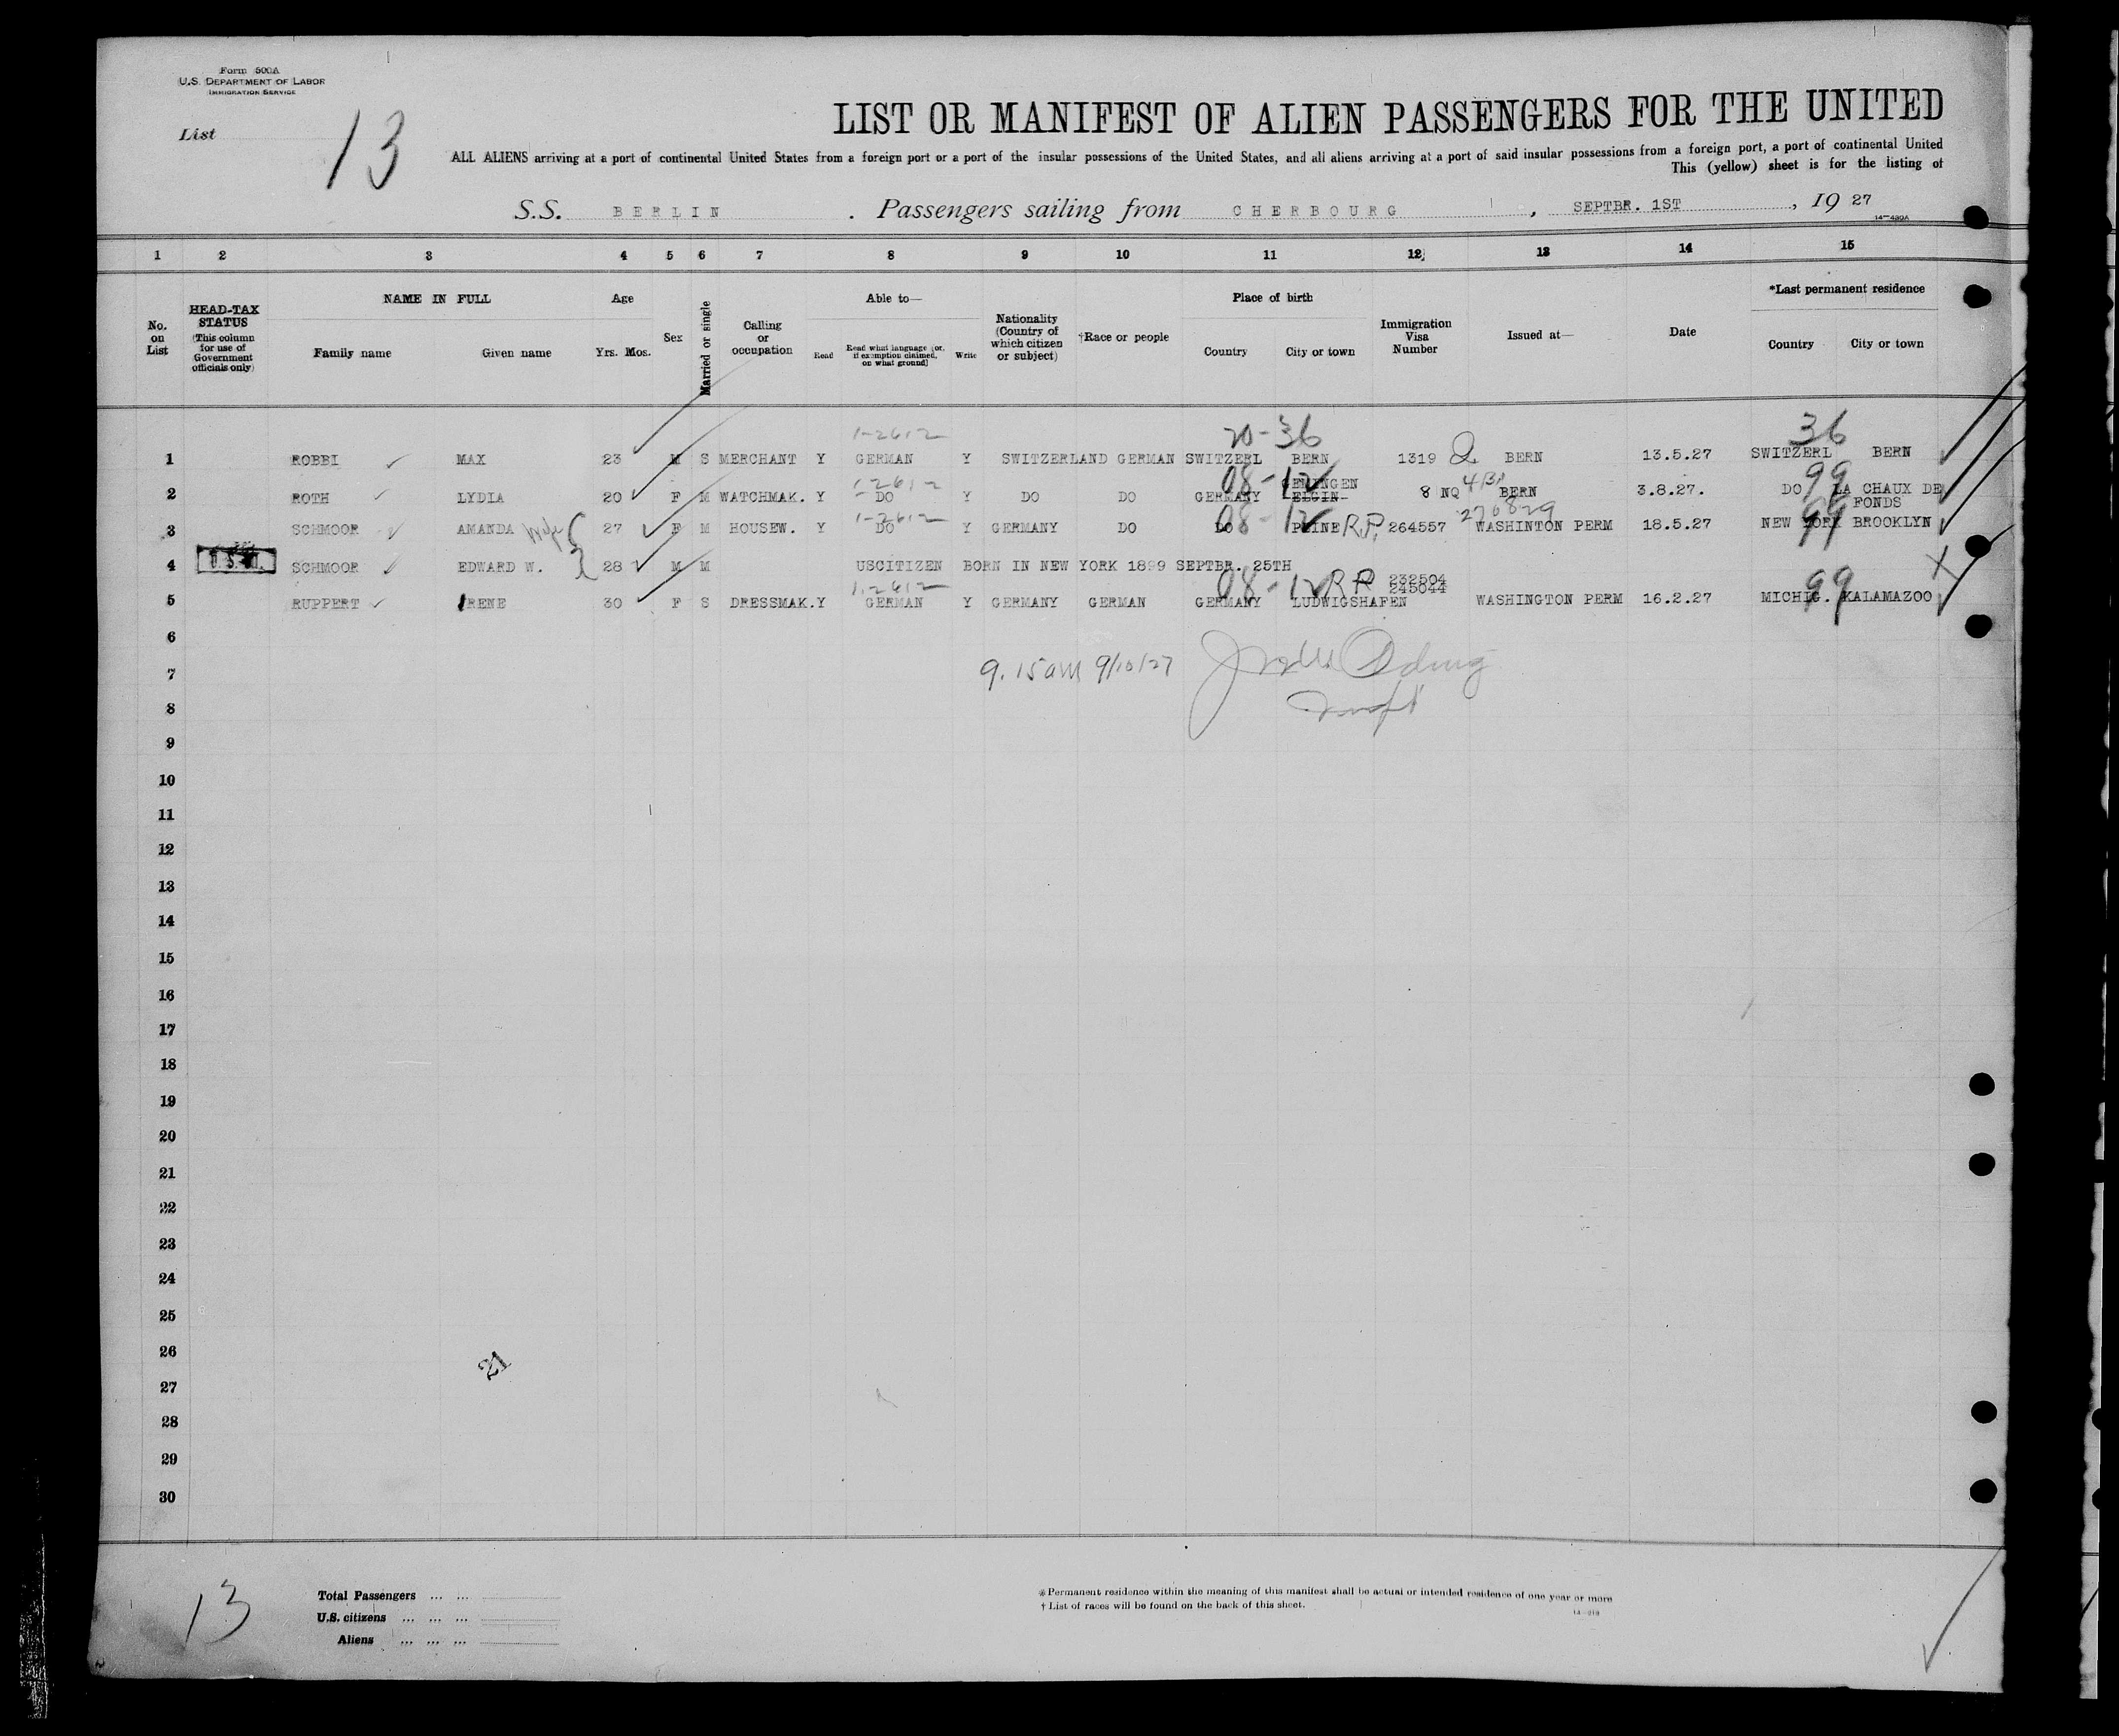 Form 500A
U.S. DEPARTMENT OF LABOR
IMMIGRATION SERVICE
List 13
LIST OR MANIFEST OF ALIEN PASSENGERS FOR THE UNITED
ALL ALIENS arriving at a port of continental United States from a foreign port or a port of the insular possessions of the United States, and all aliens arriving at a port of said insular possessions from a foreign port, a port of continental United
This (yellow) sheet is for the listing of
S.S. BERLIN . Passengers sailing from CHERBOURG , SEPTBR. 1ST , 19 27
14—480A
1 2 3 4 5 6 7 8 9 10 11 12 13 14 15
No. on List
HEAD-TAX STATUS (This column for use of Government officials only)
NAME IN FULL
Family name Given name
Age
Yrs. Mos.
Sex
Married or single
Calling or occupation
Able to—
Read Read what language [or, if exemption claimed, on what ground] Write
Nationality (Country of which citizen or subject)
†Race or people
Place of birth
Country City or town
Immigration Visa Number
Issued at—
Date
*Last permanent residence
Country City or town
1-2612 20-36 36
1 ROBBI MAX 23 M S MERCHANT Y GERMAN Y SWITZERLAND GERMAN SWITZERL BERN 1319 Q BERN 13.5.27 SWITZERL BERN
1-2612 08-12 99
2 ROTH LYDIA 20 F M WATCHMAK. Y DO Y DO DO GERMANY ELGIN 8 NQ BERN 3.8.27. DO LA CHAUX DE FONDS
1-2612 08-12 276829 99
3 SCHMOOR AMANDA Wife 27 F M HOUSEW. Y DO Y GERMANY DO DO PEINE R.P. 264557 WASHINTON PERM 18.5.27 NEW YORK BROOKLYN
4 SCHMOOR EDWARD W. 28 M M USCITIZEN BORN IN NEW YORK 1899 SEPTBR. 25TH X
1-2612 08-12 RP 232504 99
245044
5 RUPPERT IRENE 30 F S DRESSMAK. Y GERMAN Y GERMANY GERMAN GERMANY LUDWIGSHAFEN WASHINGTON PERM 16.2.27 MICHIG. KALAMAZOO
6
7 9.15 am 9/10/27
8
9
10
11
12
13
14
15
16
17
18
19
20
21
22
23
24
25
26
21
27
28
29
30
13
Total Passengers ... ...
U.S. citizens ... ... ...
Aliens ... ... ...
* Permanent residence within the meaning of this manifest shall be actual or intended residence of one year or more
† List of races will be found on the back of this sheet.